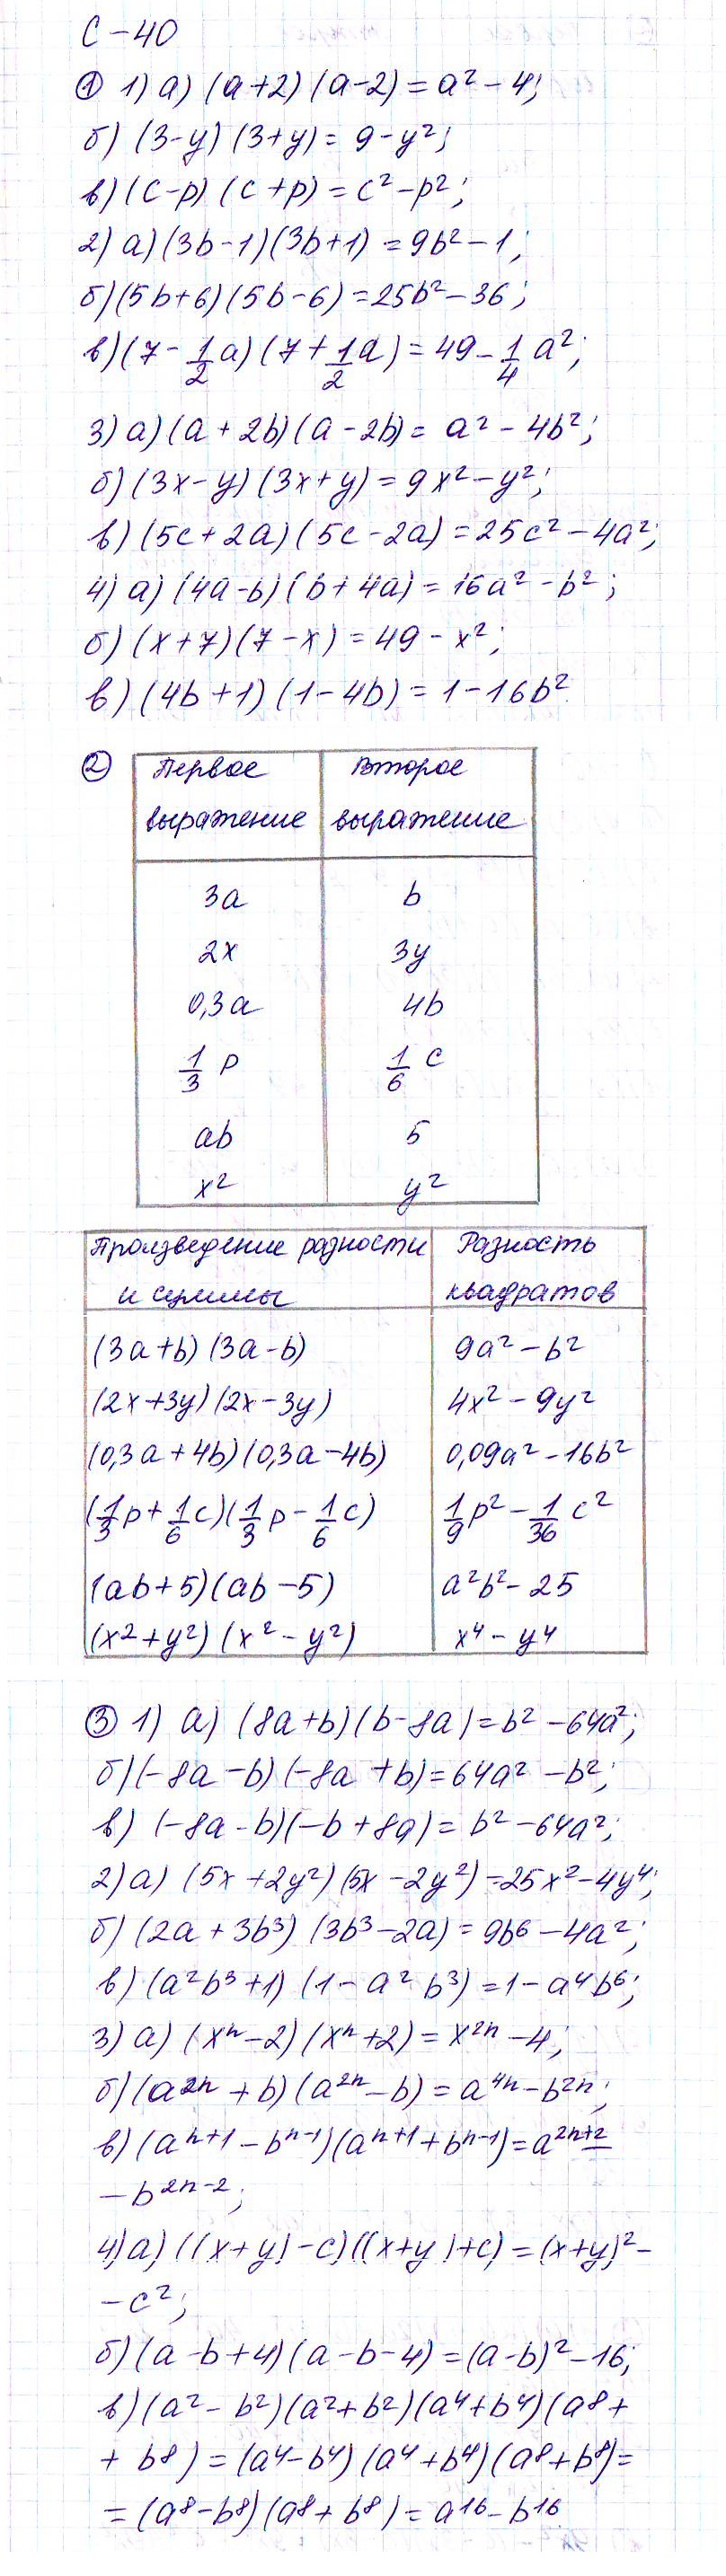 С-40
① 1) а) (a+2)(a-2) = a² - 4;
б) (3-y)(3+y) = 9-y²;
в) (c-p)(c+p) = c²-p²;
2) а) (3b-1)(3b+1) = 9b²-1;
б) (5b+6)(5b-6) = 25b²-36;
в) (7 - 1/2 a)(7 + 1/2 a) = 49 - 1/4 a²;
3) а) (a+2b)(a-2b) = a² - 4b²;
б) (3x-y)(3x+y) = 9x²-y²;
в) (5c+2a)(5c-2a) = 25c²-4a²;
4) а) (4a-b)(b+4a) = 16a²-b²;
б) (x+7)(7-x) = 49-x²;
в) (4b+1)(1-4b) = 1-16b²
② Первое Второе
выражение выражение
3a b
2x 3y
0,3a 4b
1/3 p 1/6 c
ab 5
x² y²
Произведение разности Разность
и суммы квадратов
(3a+b)(3a-b) 9a²-b²
(2x+3y)(2x-3y) 4x²-9y²
(0,3a+4b)(0,3a-4b) 0,09a²-16b²
(1/3 p + 1/6 c)(1/3 p - 1/6 c) 1/9 p² - 1/36 c²
(ab+5)(ab-5) a²b²-25
(x²+y²)(x²-y²) x⁴-y⁴
③ 1) а) (8a+b)(b-8a) = b²-64a²;
б) (-8a-b)(-8a+b) = 64a²-b²;
в) (-8a-b)(-b+8a) = b²-64a²;
2) а) (5x+2y²)(5x-2y²) = 25x²-4y⁴;
б) (2a+3b³)(3b³-2a) = 9b⁶-4a²;
в) (a²b³+1)(1-a²b³) = 1-a⁴b⁶;
3) а) (xⁿ-2)(xⁿ+2) = x²ⁿ-4;
б) (a²ⁿ+b)(a²ⁿ-b) = a⁴ⁿ-b²ⁿ;
в) (aⁿ⁺¹-bⁿ⁻¹)(aⁿ⁺¹+bⁿ⁻¹) = a²ⁿ⁺² -
-b²ⁿ⁻²;
4) а) ((x+y)-c)((x+y)+c) = (x+y)²-
-c²;
б) (a-b+4)(a-b-4) = (a-b)²-16;
в) (a²-b²)(a²+b²)(a⁴+b⁴)(a⁸+
+b⁸) = (a⁴-b⁴)(a⁴+b⁴)(a⁸+b⁸) =
= (a⁸-b⁸)(a⁸+b⁸) = a¹⁶-b¹⁶